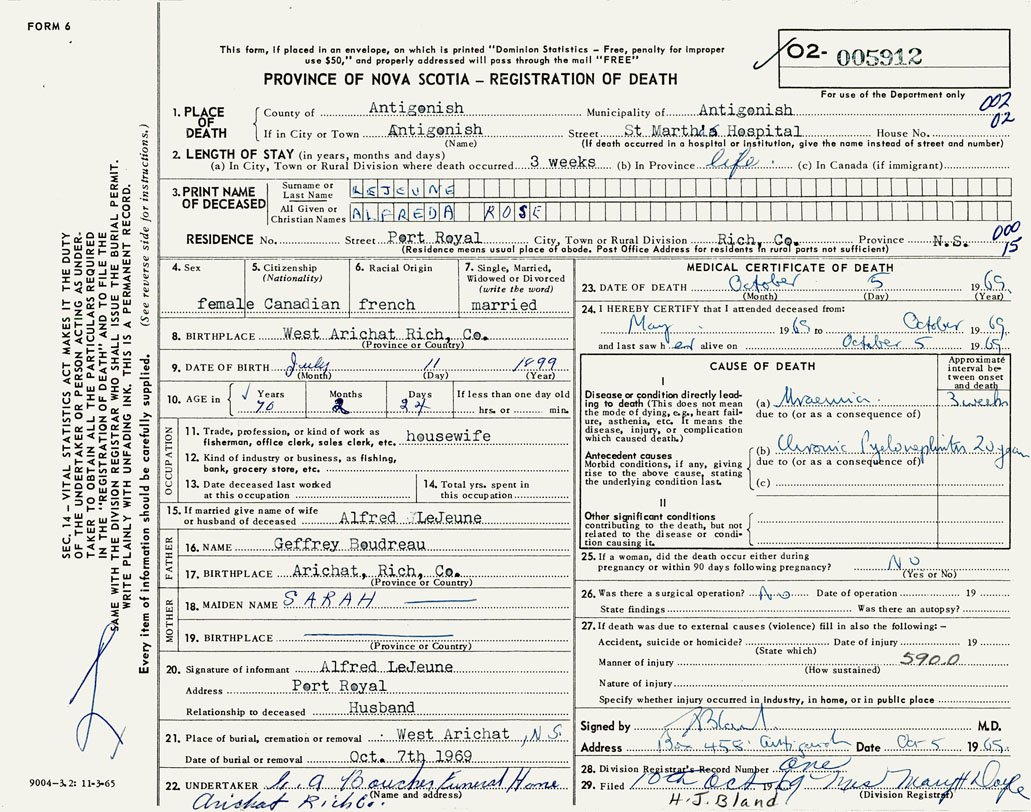 FORM 6
This form, if placed in an envelope, on which is printed "Dominion Statistics – Free, penalty for improper
use $50," and properly addressed will pass through the mail "FREE"
PROVINCE OF NOVA SCOTIA – REGISTRATION OF DEATH
02- 005912
For use of the Department only
002
02
SEC. 14 – VITAL STATISTICS ACT MAKES IT THE DUTY
OF THE UNDERTAKER OR PERSON ACTING AS UNDER-
TAKER TO OBTAIN ALL THE PARTICULARS REQUIRED
IN THE "REGISTRATION OF DEATH" AND TO FILE THE
SAME WITH THE DIVISION REGISTRAR WHO SHALL ISSUE THE BURIAL PERMIT.
WRITE PLAINLY WITH UNFADING INK. THIS IS A PERMANENT RECORD.
Every item of information should be carefully supplied. (See reverse side for instructions.)
1. PLACE OF DEATH
County of Antigonish Municipality of Antigonish
If in City or Town Antigonish Street St Martha's Hospital House No.
(Name) (If death occurred in a hospital or institution, give the name instead of street and number)
2. LENGTH OF STAY (in years, months and days)
(a) In City, Town or Rural Division where death occurred 3 weeks (b) In Province life. (c) In Canada (if immigrant)
3. PRINT NAME OF DECEASED
Surname or Last Name LEJEUNE
All Given or Christian Names ALFREDA ROSE
RESIDENCE No. Street Port Royal City, Town or Rural Division Rich, Co. Province N.S.
(Residence means usual place of abode. Post Office Address for residents in rural parts not sufficient)
000
15
4. Sex
female
5. Citizenship
(Nationality)
Canadian
6. Racial Origin
french
7. Single, Married,
Widowed or Divorced
(write the word)
married
8. BIRTHPLACE West Arichat Rich, Co.
(Province or Country)
9. DATE OF BIRTH July 11 1899
(Month) (Day) (Year)
10. AGE in Years Months Days If less than one day old
70 2 24 hrs. or min.
OCCUPATION
11. Trade, profession or kind of work as
fisherman, office clerk, sales clerk, etc. housewife
12. Kind of industry or business, as fishing,
bank, grocery store, etc.
13. Date deceased last worked
at this occupation
14. Total yrs. spent in
this occupation
15. If married give name of wife
or husband of deceased Alfred LeJeune
FATHER
16. NAME Geffrey Boudreau
17. BIRTHPLACE Arichat, Rich, Co.
(Province or Country)
MOTHER
18. MAIDEN NAME SARAH
19. BIRTHPLACE
(Province or Country)
20. Signature of informant Alfred LeJeune
Address Port Royal
Relationship to deceased Husband
21. Place of burial, cremation or removal West Arichat, N.S.
Date of burial or removal Oct. 7th 1969
22. UNDERTAKER C. A. Boucher Funeral Home
(Name and address)
Arichat Rich Co.
9004-3.2: 11-3-65
MEDICAL CERTIFICATE OF DEATH
23. DATE OF DEATH October 5 1969
(Month) (Day) (Year)
24. I HEREBY CERTIFY that I attended deceased from:
May 1969 to October 1969
and last saw her alive on October 5 1969
CAUSE OF DEATH
Approximate
interval be-
tween onset
and death
I
Disease or condition directly lead-
ing to death (This does not mean
the mode of dying, e.g., heart fail-
ure, asthenia, etc. It means the
disease, injury, or complication
which caused death.)
(a) Uraemia 3 weeks
due to (or as a consequence of)
Antecedent causes
Morbid conditions, if any, giving
rise to the above cause, stating
the underlying condition last.
(b) Chronic Pyelonephritis 20 years
due to (or as a consequence of)
(c)
II
Other significant conditions
contributing to the death, but not
related to the disease or condi-
tion causing it.
25. If a woman, did the death occur either during
pregnancy or within 90 days following pregnancy? No
(Yes or No)
26. Was there a surgical operation? No Date of operation 19
State findings Was there an autopsy?
27. If death was due to external causes (violence) fill in also the following: –
Accident, suicide or homicide? Date of injury 19
(State which)
Manner of injury 590.0
(How sustained)
Nature of injury
Specify whether injury occurred in industry, in home, or in public place
Signed by J Bland M.D.
Address Box 458 Antigonish Date Oct 5 1969.
28. Division Registrar's Record Number one
29. Filed 10th Oct 1969 Mrs Mary H Doyle
(Division Registrar)
H.J. Bland